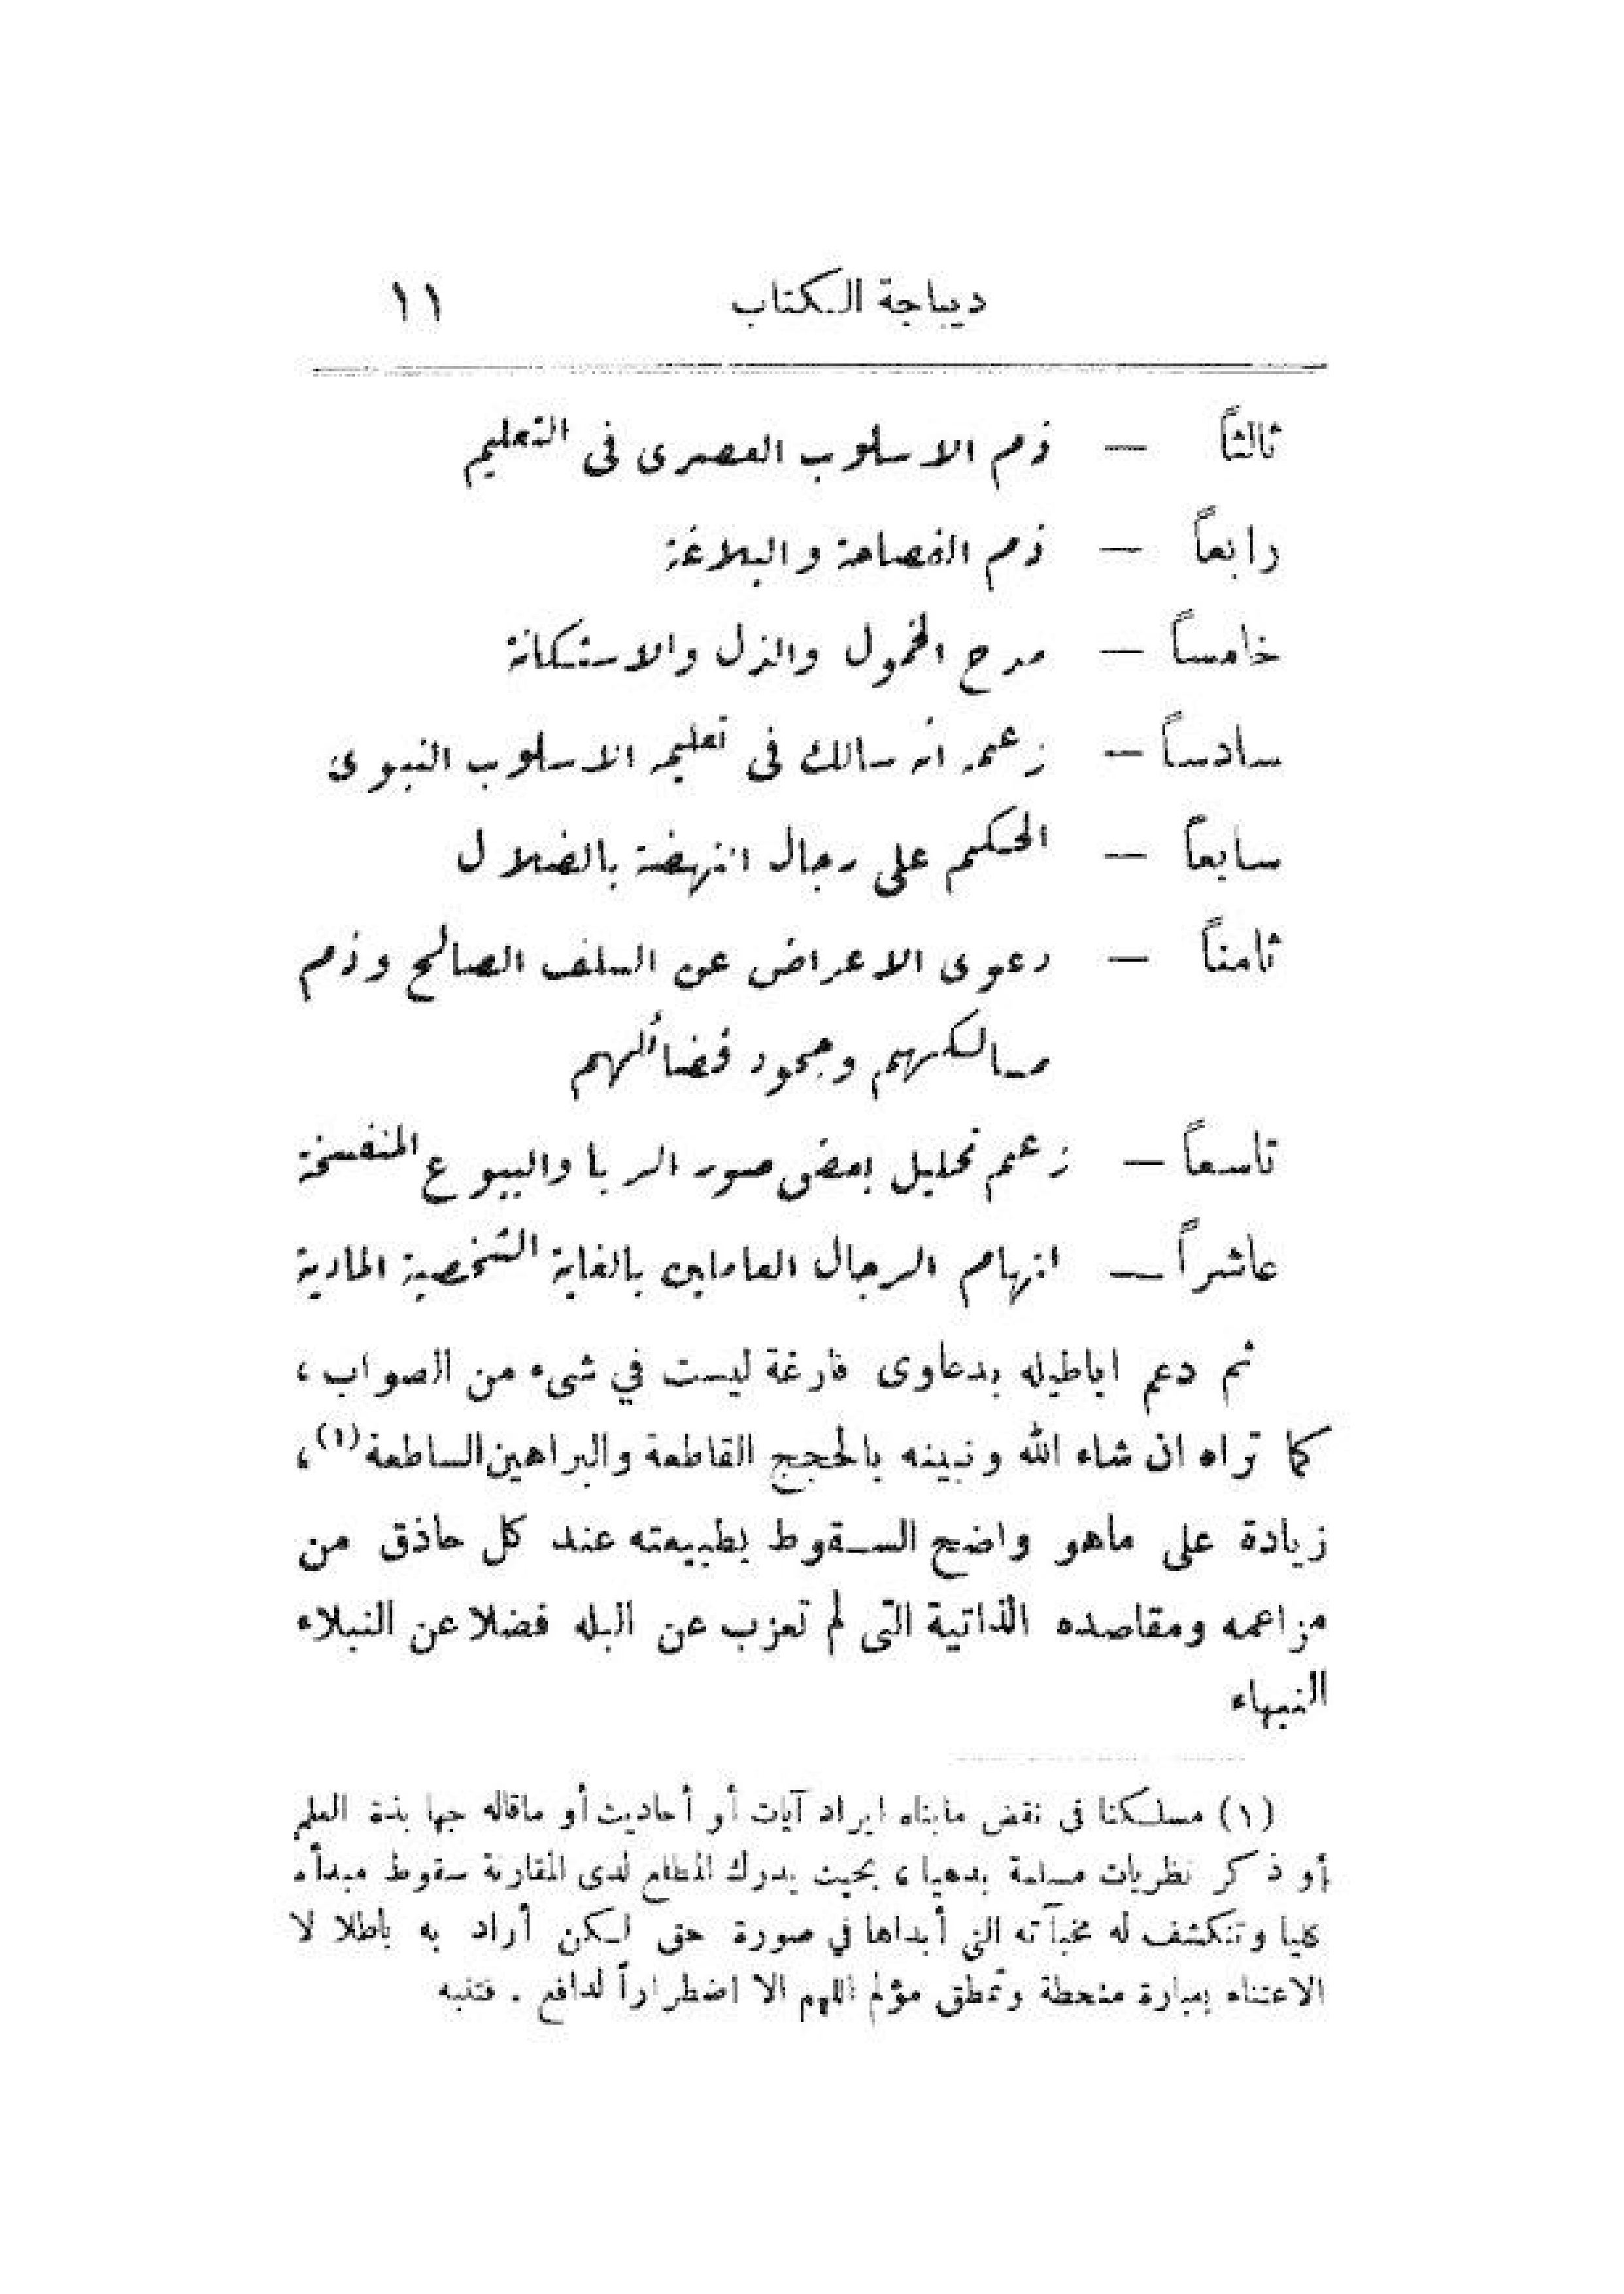 ديباجة الكتاب ١١
ثالثاً — ذم الاسلوب العصرى فى التعليم
رابعاً — ذم الفصاحة والبلاغة
خامساً — مدح الخمول والذل والاستكانة
سادساً — زعمه انه سالك فى تعليمه الاسلوب النبوى
سابعاً — الحكم على رجال النهضة بالضلال
ثامناً — دعوى الاعراض عن السلف الصالح وذم
مسالكهم وجحود فضائلهم
تاسعاً — زعم تحليل بعض صور الربا والبيوع المنفسخة
عاشراً — اتهام الرجال العاملين بالغاية الشخصية المادية
ثم دعم اباطيله بدعاوى فارغة ليست في شىء من الصواب ،
كما تراه ان شاء الله ونبينه بالحجج القاطعة والبراهين الساطعة (١) ،
زيادة على ماهو واضح السقوط بطبيعته عند كل حاذق من
مزاعمه ومقاصده الذاتية التى لم تعزب عن البله فضلا عن النبلاء
النبهاء
(١) مسلكنا فى نقض مابناه ايراد آيات أو أحاديث أو ماقاله جهابذة العلم
أو ذكر نظريات مسلمة بدهيا ، بحيث يدرك المطلع لدى المقارنة سقوط مبدأه
كليا وتنكشف له مخبآته التى أبداها في صورة حق لكن أراد به باطلا لا
الاعتناء بعبارة منحطة وتمطق مؤلم اللهم الا اضطراراً لدافع . فتنبه